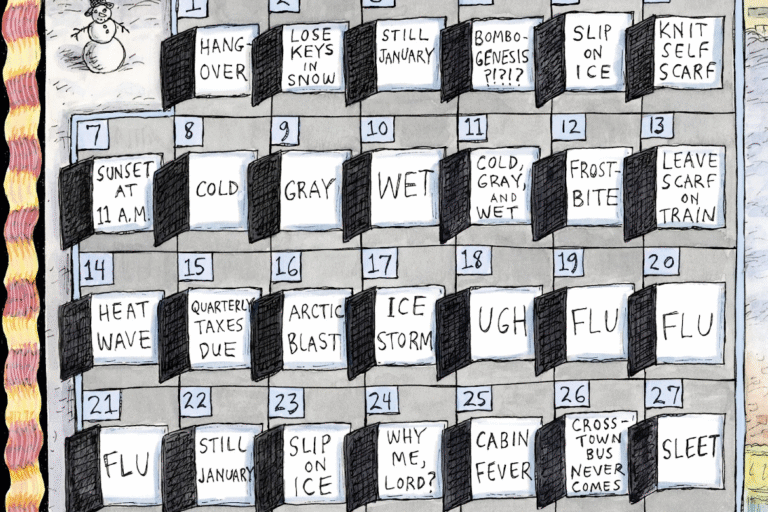 1
HANG-
OVER
LOSE
KEYS
IN
SNOW
STILL
JANUARY
BOMBO-
GENESIS
?!?!?
SLIP
ON
ICE
KNIT
SELF
SCARF
7
SUNSET
AT
11 A.M.
8
COLD
9
GRAY
10
WET
11
COLD,
GRAY,
AND
WET
12
FROST-
BITE
13
LEAVE
SCARF
ON
TRAIN
14
HEAT
WAVE
15
QUARTERLY
TAXES
DUE
16
ARCTIC
BLAST
17
ICE
STORM
18
UGH
19
FLU
20
FLU
21
FLU
22
STILL
JANUARY
23
SLIP
ON
ICE
24
WHY
ME,
LORD?
25
CABIN
FEVER
26
CROSS-
TOWN
BUS
NEVER
COMES
27
SLEET